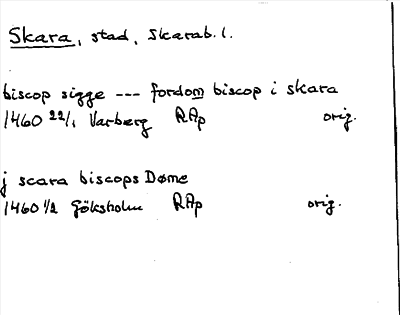 Skara, stad, Skarab. l.
biscop sigge --- fordom biscop i skara
1460 22/1 Varberg RAp orig.
j scara biscops Døme
1460 1/2 Göksholm RAp orig.